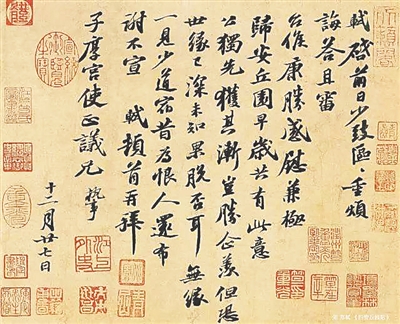 轼启前日少致區區重煩
誨答且審
台候康勝感慰兼極
歸安丘園早歲共有此意
公獨先獲其漸豈勝企羨但恐
世緣已深未知果脫否耳無緣
一見少道宿昔為恨人還布
謝不宣 軾頓首再拜
子厚宮使正議兄 執事
十二月廿七日